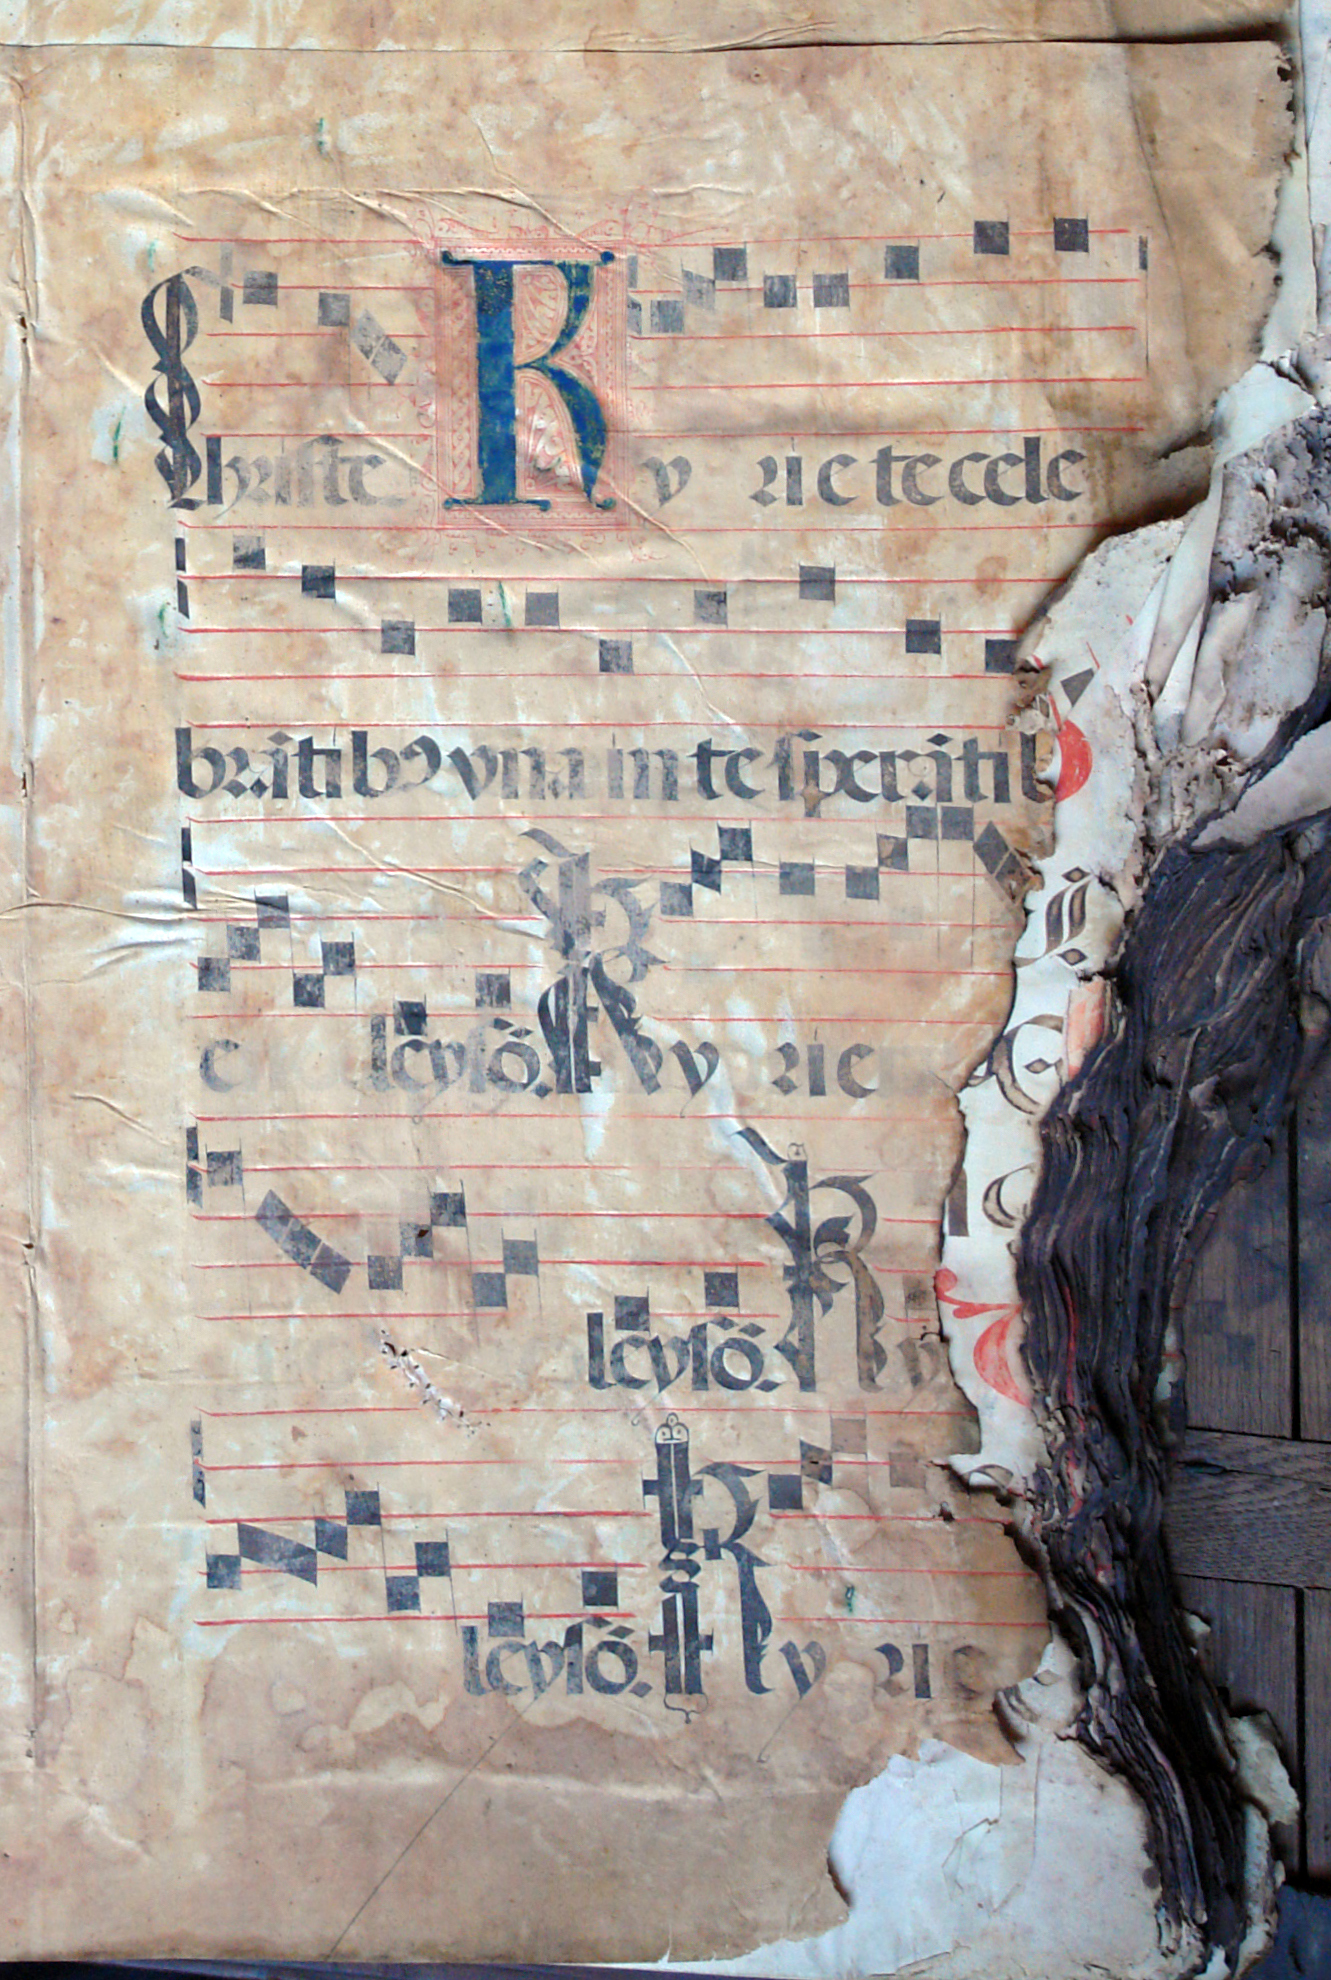 Christe Ky rie te cele
brātibꝰ vna in te sperātib
e leysō. Ky rie
leysō. Ky
leysō. Ky rie